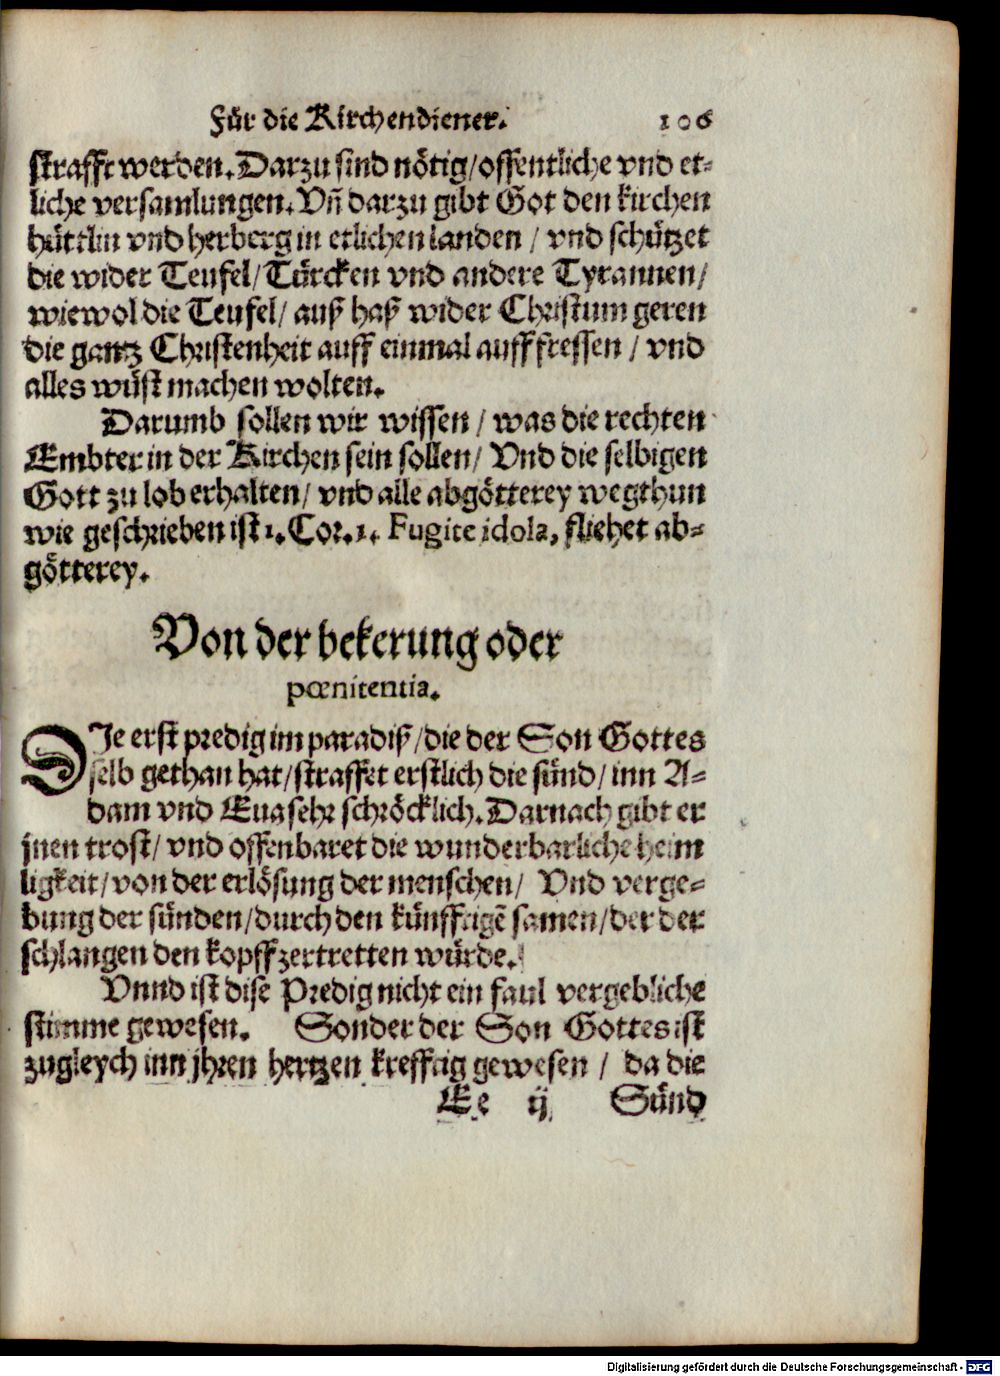 Für die Kirchendiener. 106
strafft werden. Darzu sind nötig/ offentliche vnd et-
liche versamlungen. Vñ darzu gibt Got den kirchen
hüttlin vnd herberg in etlichen landen / vnd schützet
die wider Teufel/ Türcken vnd andere Tyrannen/
wiewol die Teufel/ auß haß wider Christum geren
die gantz Christenheit auff einmal auff fressen / vnd
alles wüst machen wolten.
Darumb sollen wir wissen / was die rechten
Embter in der Kirchen sein sollen/ Vnd die selbigen
Gott zu lob erhalten/ vnd alle abgötterey wegthun
wie geschrieben ist 1. Cor. 1. Fugite idola, fliehet ab-
götterey.
Von der bekerung oder
pœnitentia.
DIe erst predig im paradiß/ die der Son Gottes
selb gethan hat/ straffet erstlich die sünd/ inn A-
dam vnd Eua sehr schröcklich. Darnach gibt er
jnen trost/ vnd offenbaret die wunderbarliche heim
ligkeit/ von der erlösung der menschen/ Vnd verge-
bung der sünden/ durch den künfftigẽ samen/ der der
schlangen den kopff zertretten würde.
Vnnd ist dise Predig nicht ein faul vergebliche
stimme gewesen. Sonder der Son Gottes ist
zugleych inn jhren hertzen krefftig gewesen / da die
Ee ij Sünd
Digitalisierung gefördert durch die Deutsche Forschungsgemeinschaft - DFG